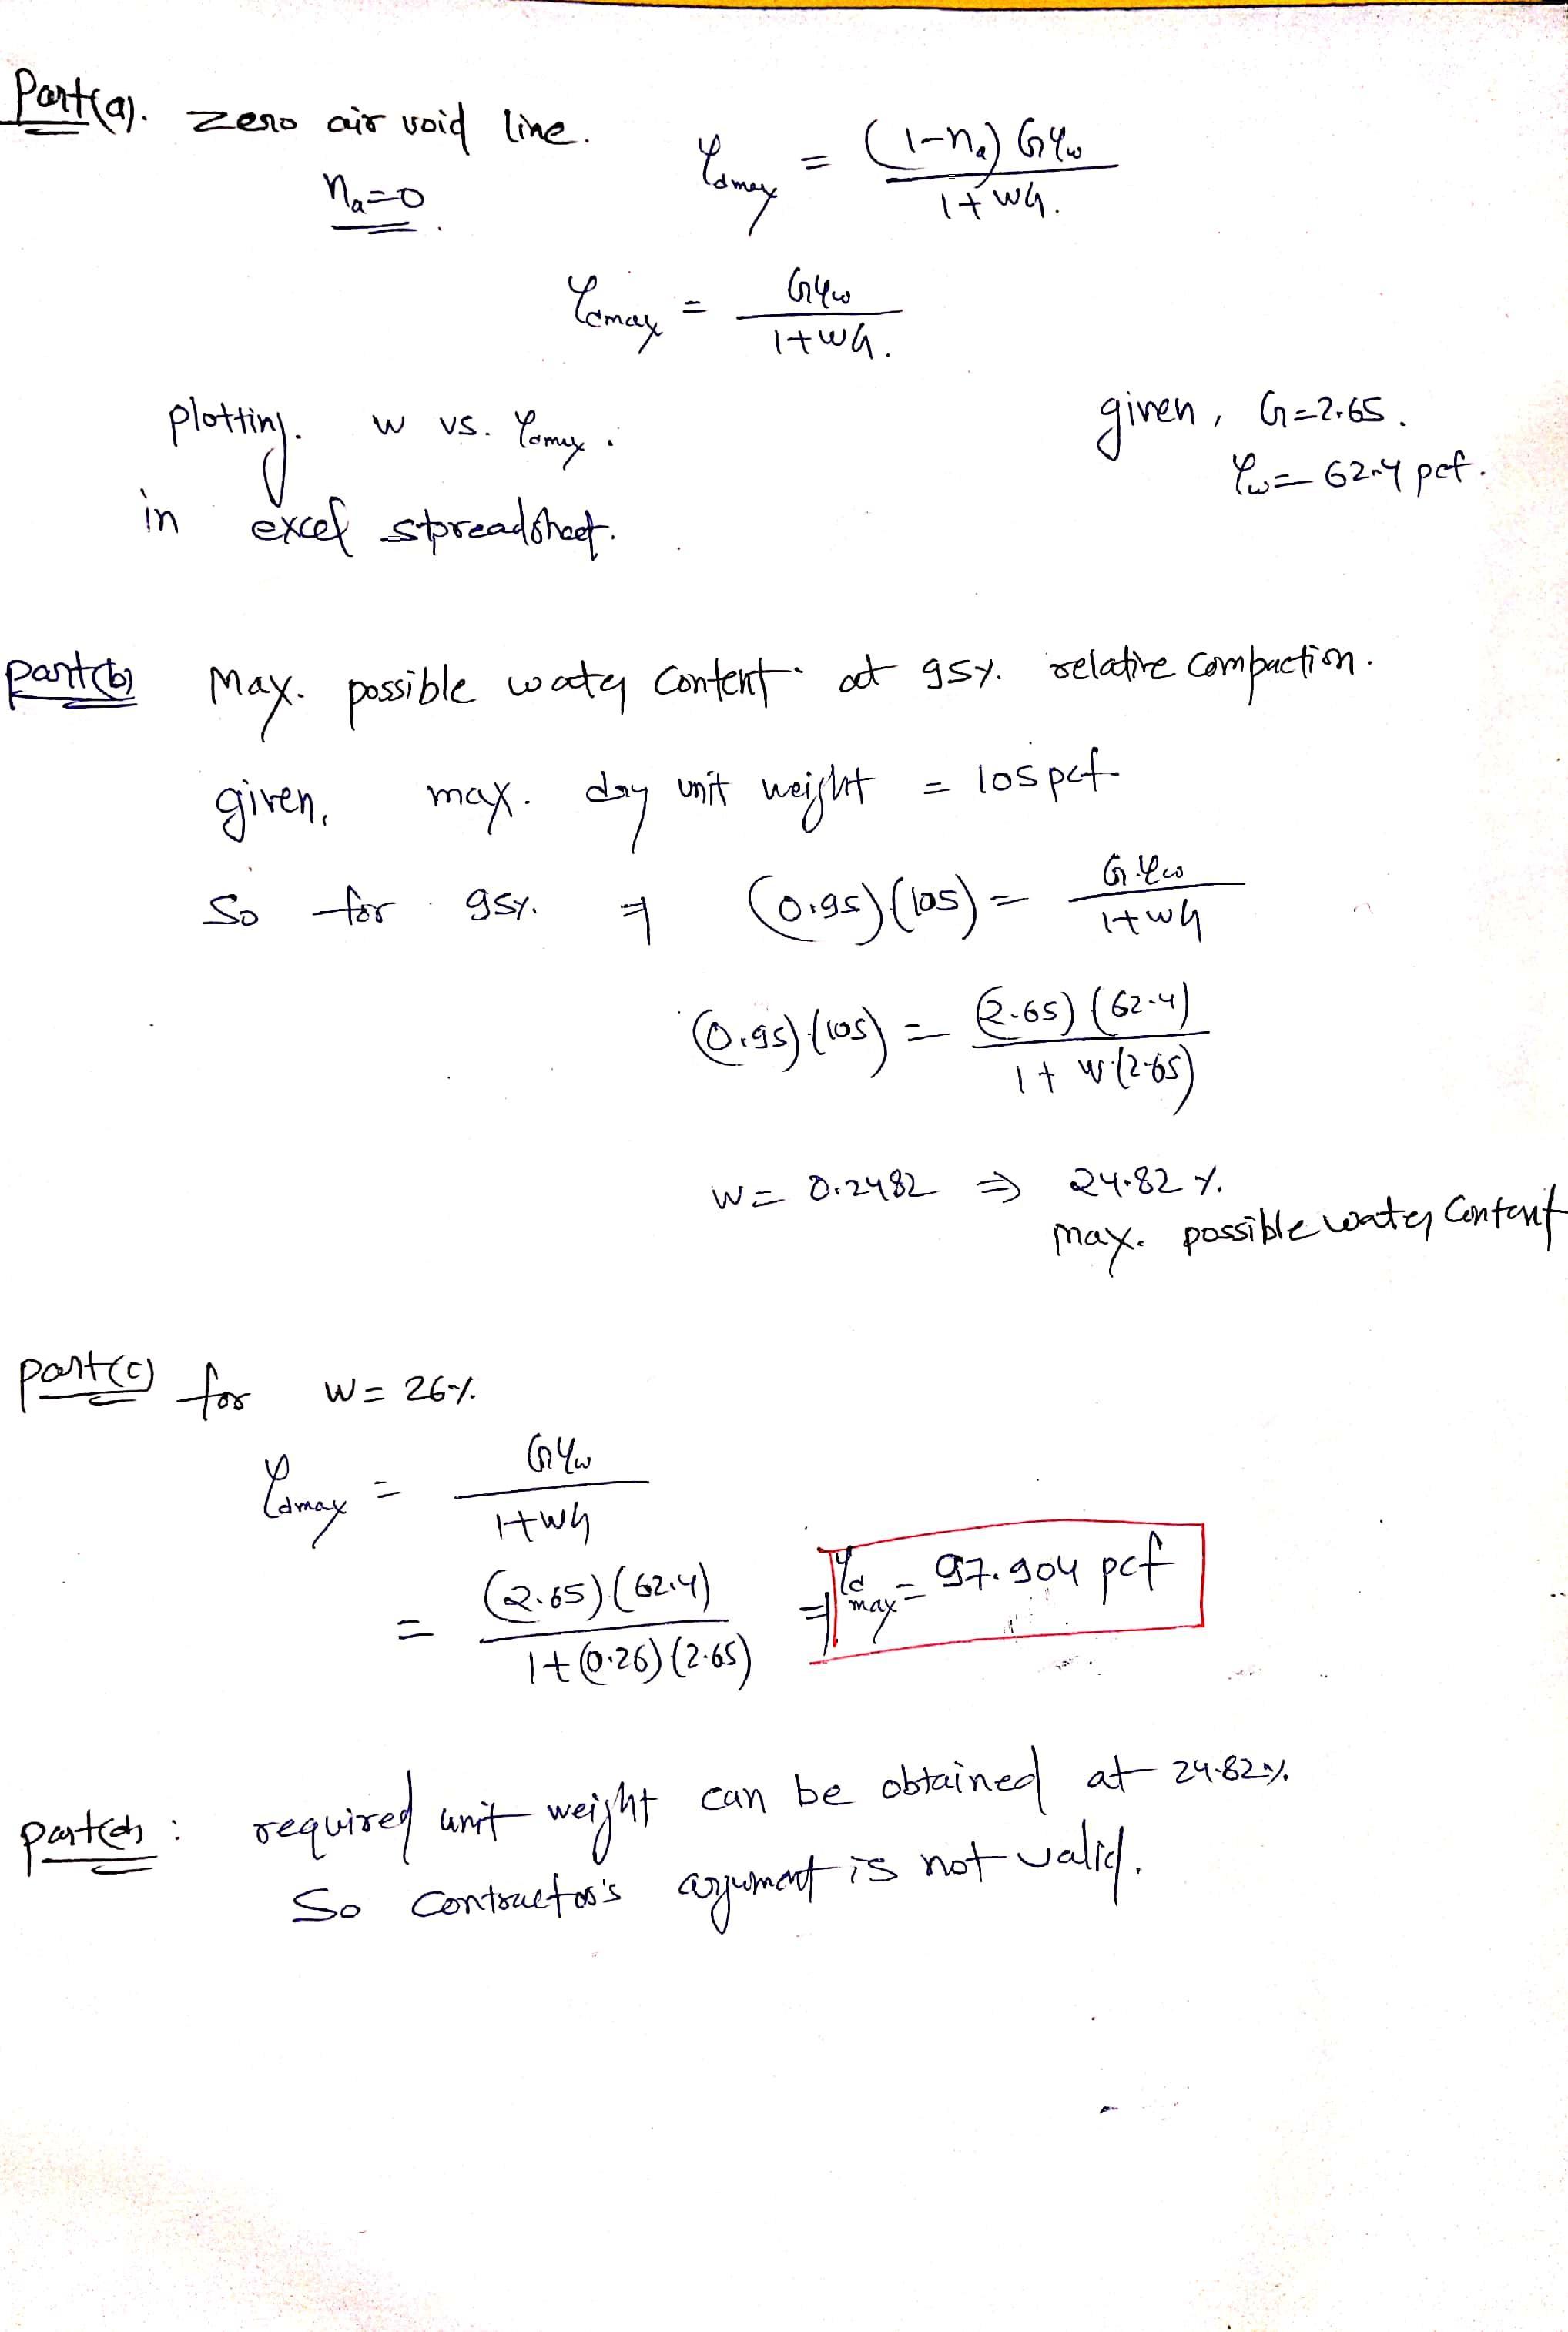 Part(a). zero air void line.
na=0
γdmax = (1-na) Gγw / 1+wG.
γdmax = Gγw / 1+wG.
plotting. w vs. γdmax.
in excel spreadsheet.
given, G=2.65.
γw= 62.4 pcf.
part(b) Max. possible water content at 95%. relative compaction.
given, max. dry unit weight = 105 pcf
So for 95%. ⇒ (0.95)(105) = G.γw / 1+wG
(0.95)(105) = (2.65) (62.4) / 1+ w(2.65)
w= 0.2482 ⇒ 24.82 %.
max. possible water Content
part(c) for w= 26%.
γdmax = Gγw / 1+wG
= (2.65)(62.4) / 1+(0.26)(2.65) ⇒ γdmax = 97.904 pcf
part(d): required unit weight can be obtained at 24.82%.
So contractor's argument is not valid.